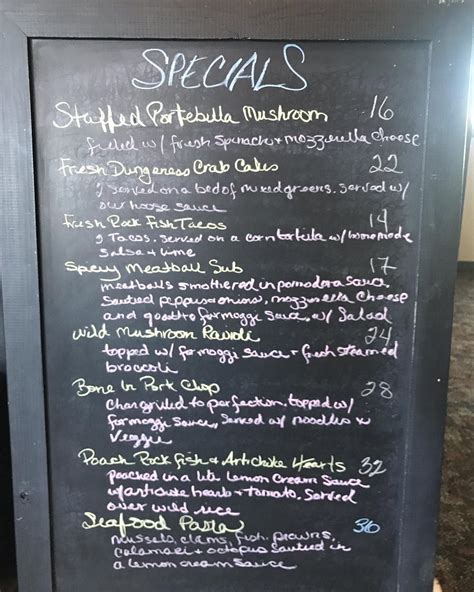 SPECIALS
Stuffed Portebella Mushroom 16
filled w/ fresh Spinach + mozzerella Cheese
Fresh Dungeness Crab Cakes 22
2 served on a bed of mixed greens. Served w/
our house sauce
Fresh Rock Fish Tacos 14
2 Tacos. Served on a corn tortilla w/ homemade
Salsa + lime
Spicy Meatball Sub 17
meatballs smothered in pomodora sauce.
Sauteed peppers + onions, mozzerella Cheese
and quattro formaggi Sauce, w/ Salad
Wild Mushroom Ravioli 24
topped w/ formaggi sauce + fresh steamed
broccoli
Bone In Pork Chop 28
Char grilled to perfection. topped w/
formaggi sauce, Served w/ noodles
Veggie
Poach Rock Fish + Artichoke Hearts 32
poached in a lite Lemon Cream Sauce
w/ artichoke hearts + tomato. Served
over wild rice
Seafood Pasta 36
mussels, clams, fish, prawns,
calamari + octopus Sauteed in
a lemon cream sauce